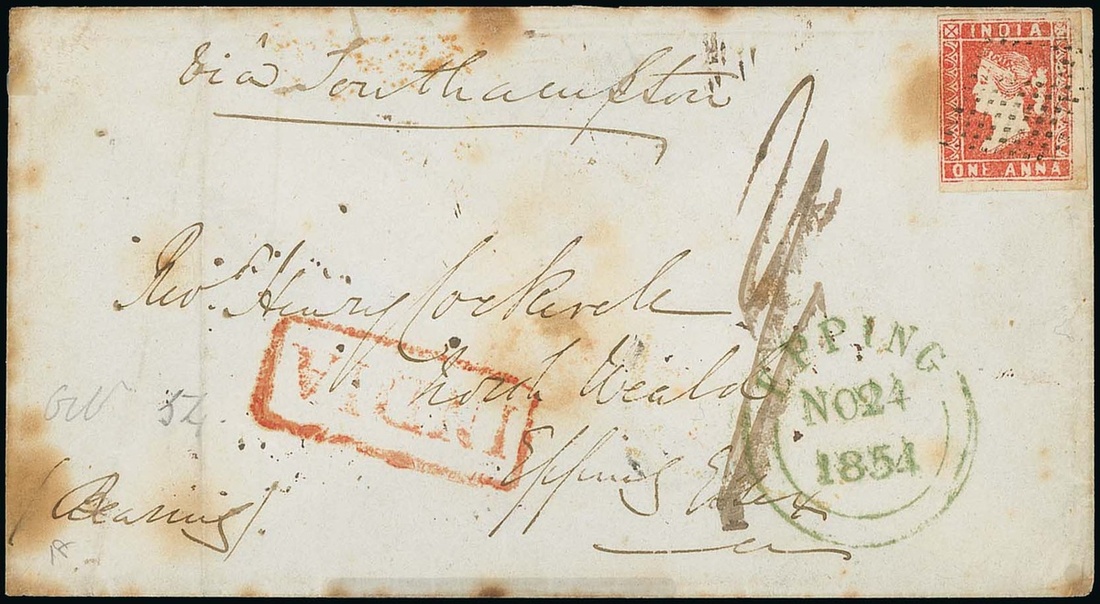 INDIA
ONE ANNA
via Southampton
Revd. Henry Cockerell
North Weald
Epping Essex
INDIA
EPPING
NO 24
1854
Oct 54
(Bearing)